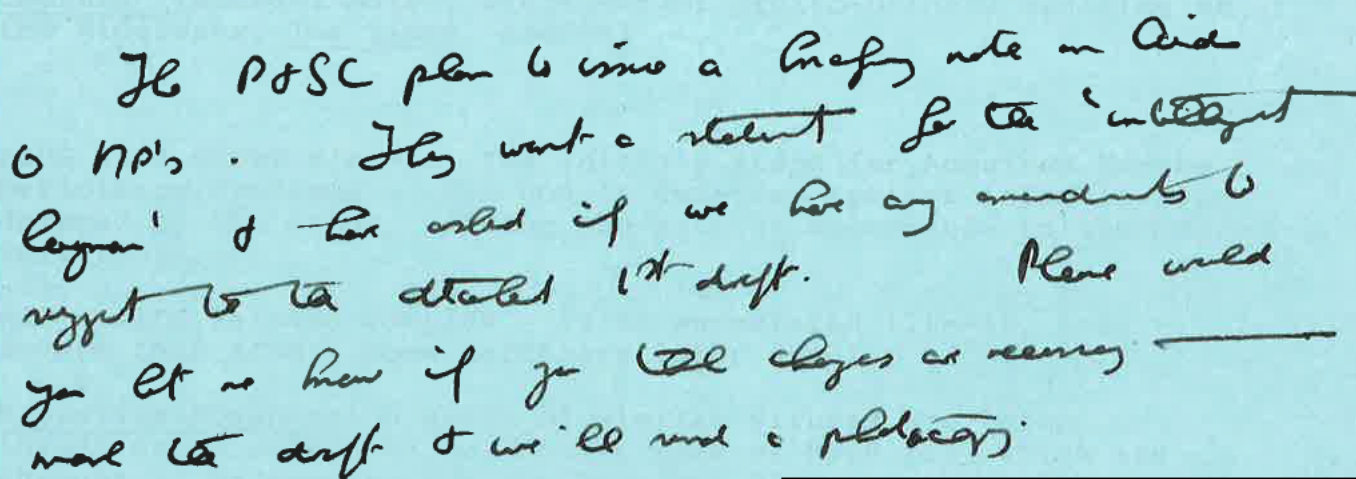 The P&SC plan to issue a briefing note on Aids
to MP's. They want a statement for the 'intelligent
layman' & have asked if we have any amendments to
suggest to the attached 1st draft. Please would
you let me know if you think changes are necessary —
mark the draft & we'll send a photocopy.